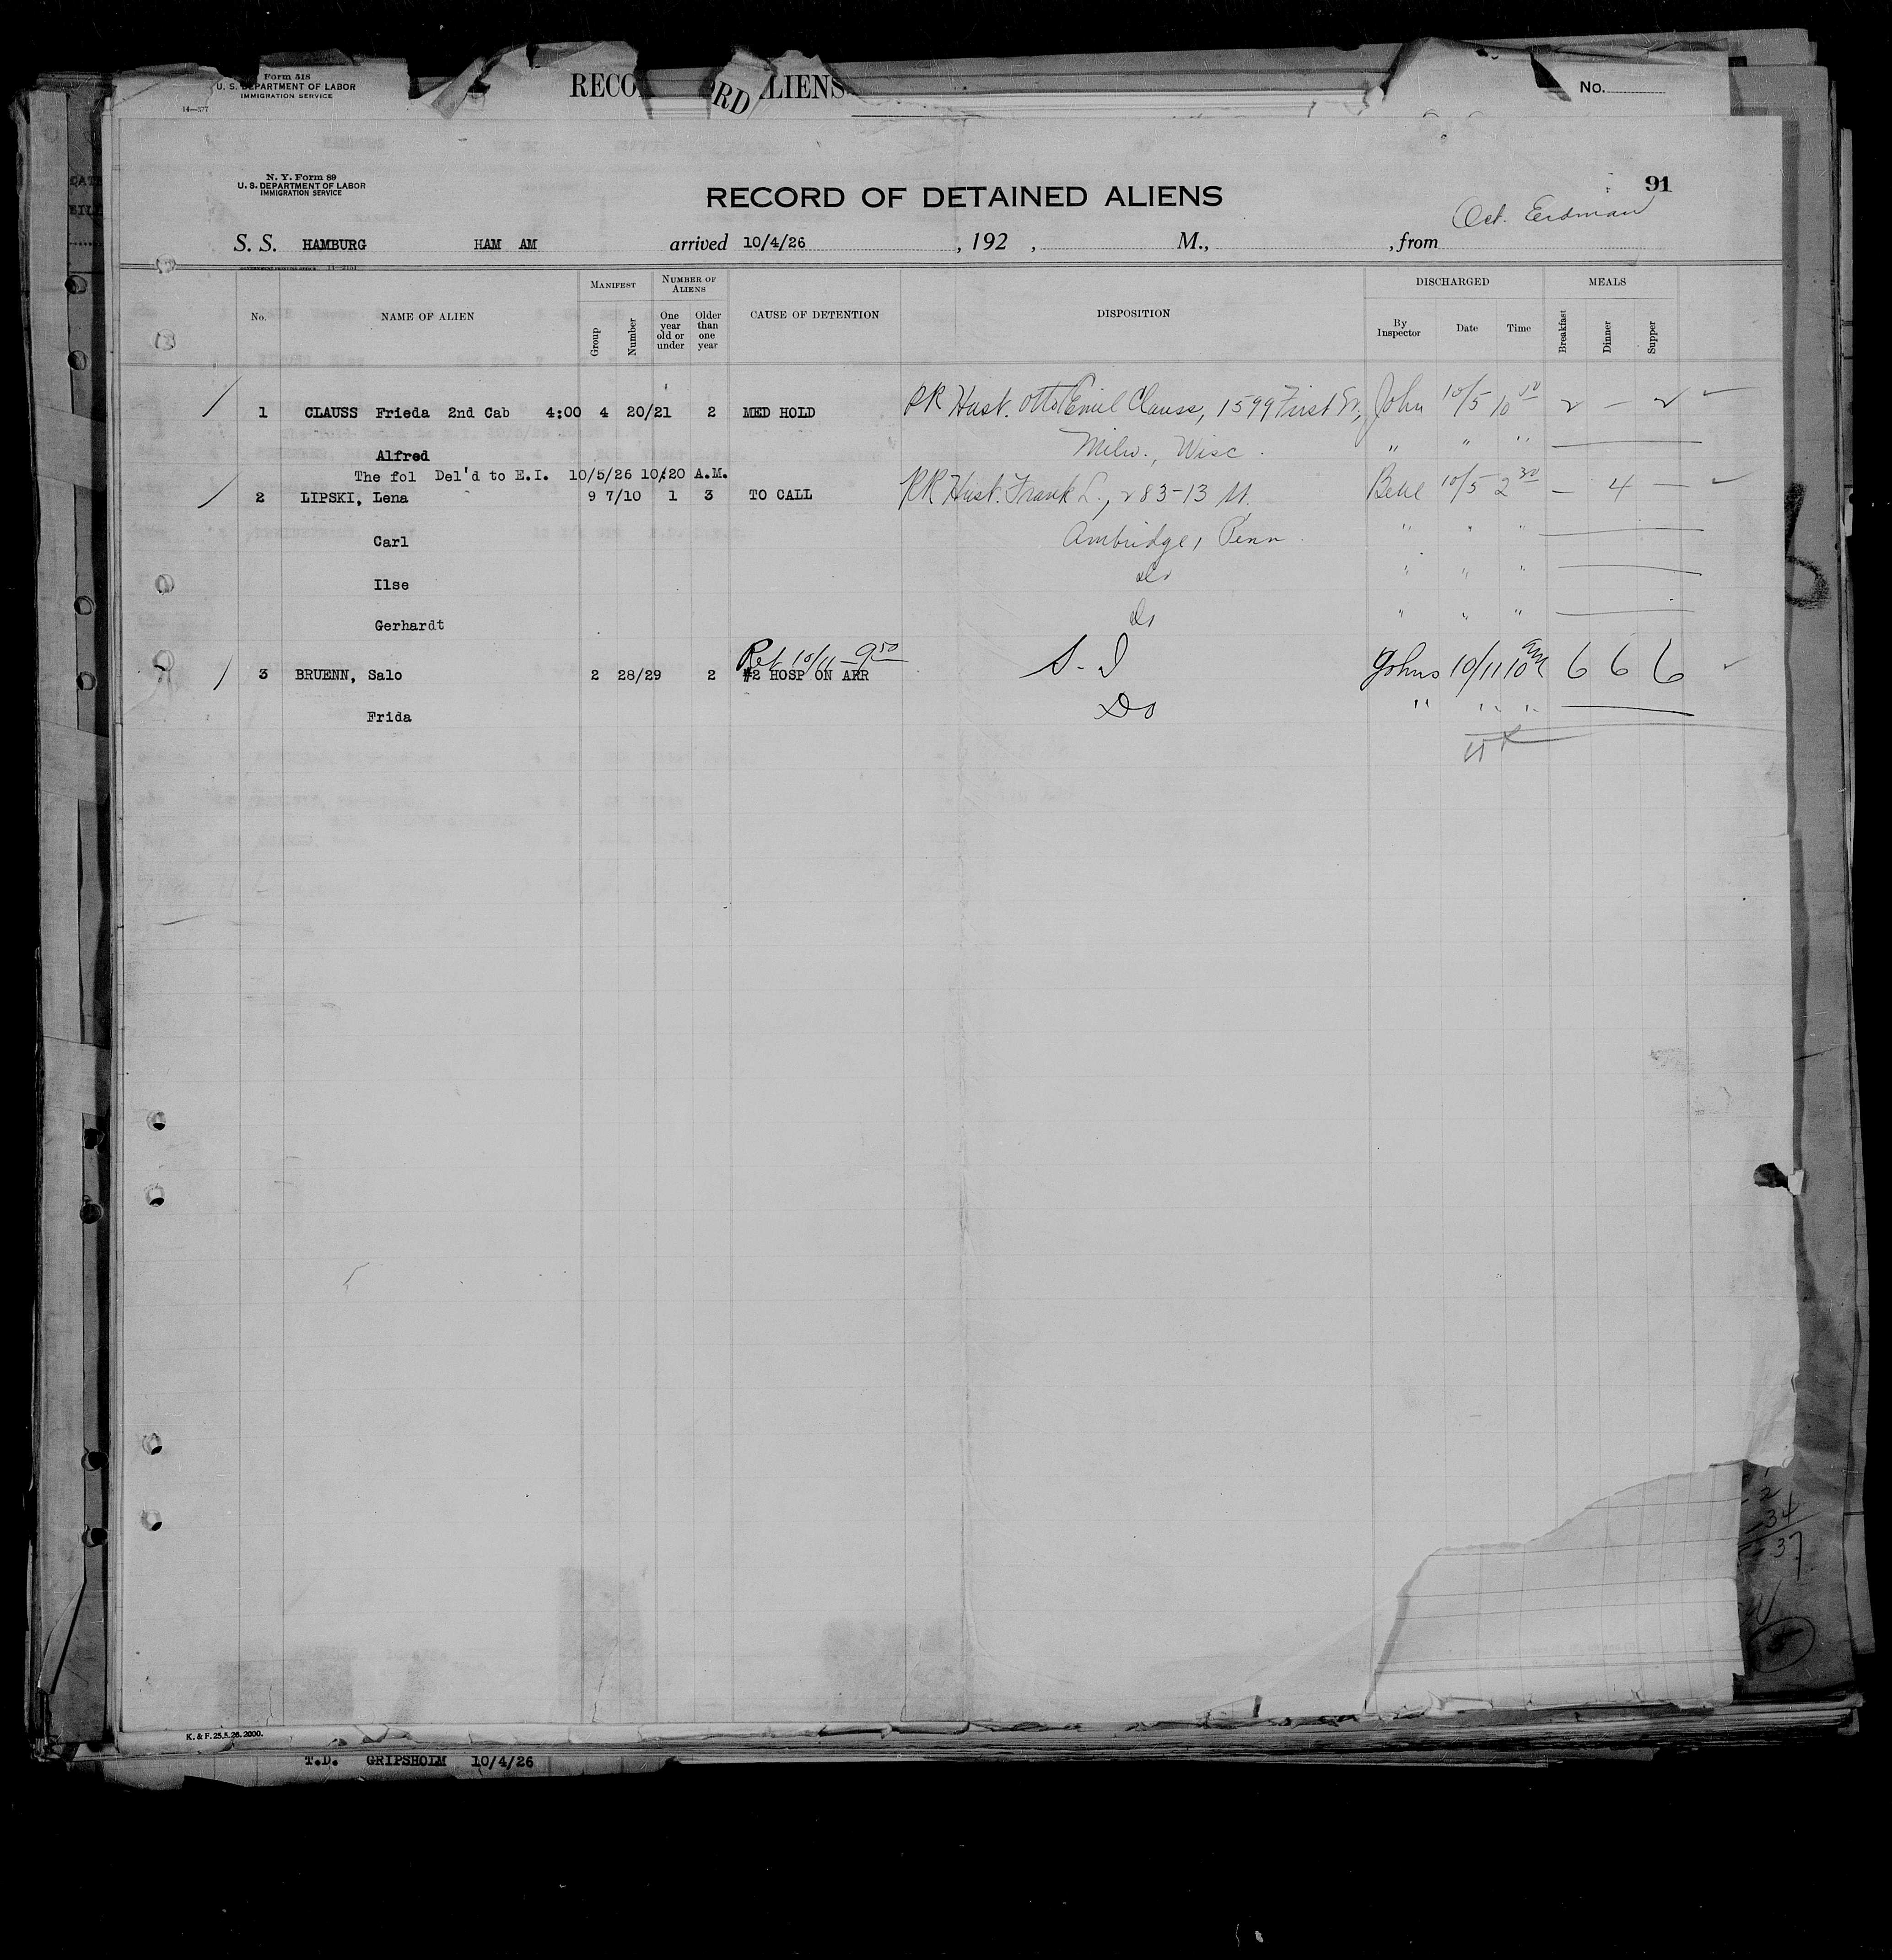 Form 518
U. S. DEPARTMENT OF LABOR
IMMIGRATION SERVICE
14—577
RECO RD ALIENS
No.
N. Y. Form 89
U. S. DEPARTMENT OF LABOR
IMMIGRATION SERVICE
RECORD OF DETAINED ALIENS
91
Oct. Erdman
S. S. HAMBURG HAM AM arrived 10/4/26, 192 , M., , from
GOVERNMENT PRINTING OFFICE 11—2151
No. NAME OF ALIEN MANIFEST Group Number NUMBER OF ALIENS One year old or under Older than one year CAUSE OF DETENTION DISPOSITION DISCHARGED By Inspector Date Time MEALS Breakfast Dinner Supper
1 CLAUSS Frieda 2nd Cab 4:00 4 20/21 2 MED HOLD PR Husb. Otto Emil Clauss, 1599 First St, John 10/5 10 2 — 2
Alfred Milw., Wisc. " " "
The fol Del'd to E.I. 10/5/26 10:20 A.M.
2 LIPSKI, Lena 9 7/10 1 3 TO CALL RR Husb. Frank L., 283-13 St. Bene 10/5 2 30 — 4 —
Carl Ambridge, Penn. " " "
Ilse do " " "
Gerhardt do " " "
Ret 10/11 — 9 50
3 BRUENN, Salo 2 28/29 2 #2 HOSP ON ARR S. I Johns 10/11 10 am 6 6 6
Frida Do " " "
K. & F. 25.5.26. 2000.
T.D. GRIPSHOLM 10/4/26
2
34
37